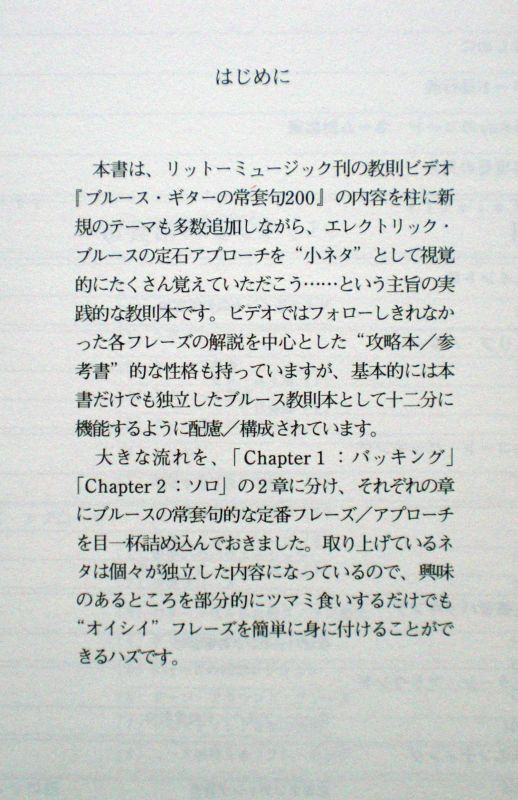 はじめに
本書は、リットーミュージック刊の教則ビデオ
『ブルース・ギターの常套句200』の内容を柱に新
規のテーマも多数追加しながら、エレクトリック・
ブルースの定石アプローチを“小ネタ”として視覚
的にたくさん覚えていただこう……という主旨の実
践的な教則本です。ビデオではフォローしきれなか
った各フレーズの解説を中心とした“攻略本／参
考書”的な性格も持っていますが、基本的には本
書だけでも独立したブルース教則本として十二分に
機能するように配慮／構成されています。
大きな流れを、「Chapter 1：バッキング」
「Chapter 2：ソロ」の2章に分け、それぞれの章
にブルースの常套句的な定番フレーズ／アプローチ
を目一杯詰め込んでおきました。取り上げているネ
タは個々が独立した内容になっているので、興味
のあるところを部分的にツマミ食いするだけでも
“オイシイ”フレーズを簡単に身に付けることがで
きるハズです。